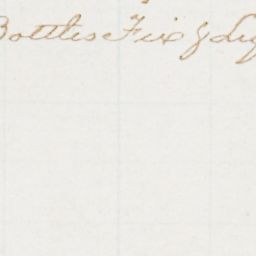 Bottles Fix & Lig